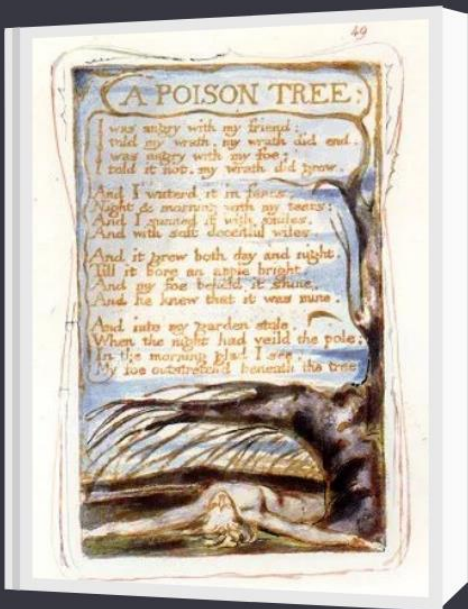 49
A POISON TREE.
I was angry with my friend:
I told my wrath, my wrath did end.
I was angry with my foe:
I told it not, my wrath did grow.
And I waterd it in fears,
Night & morning with my tears:
And I sunned it with smiles,
And with soft deceitful wiles.
And it grew both day and night.
Till it bore an apple bright.
And my foe beheld it shine,
And he knew that it was mine.
And into my garden stole.
When the night had veild the pole;
In the morning glad I see.
My foe outstretchd beneath the tree.